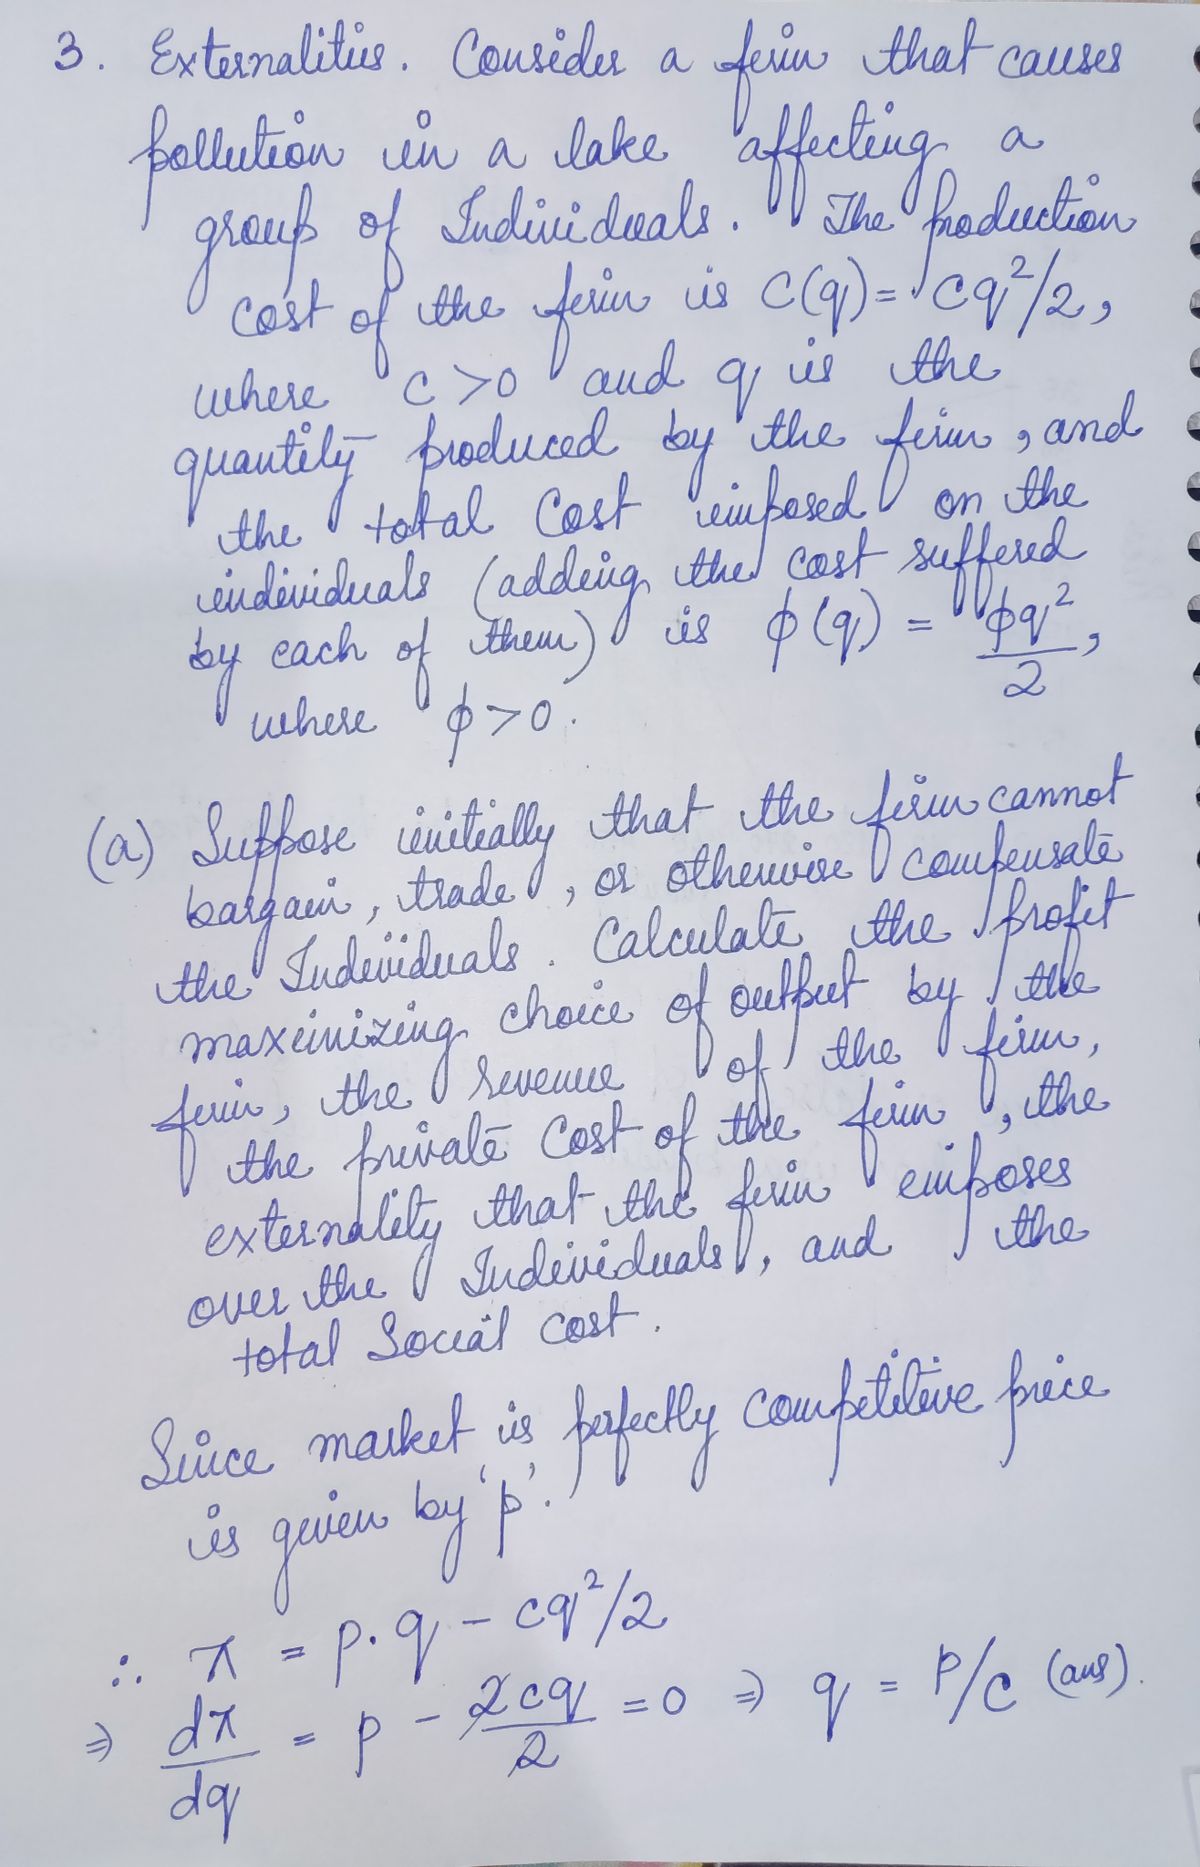 3. Externalities. Consider a firm that causes
pollution in a lake affecting a
group of Individuals. The production
cost of the firm is C(q) = cq²/2,
where c>0 and q is the
quantity produced by the firm, and
the total cost imposed on the
individuals (adding the cost suffered
by each of them) is ϕ(q) = ϕq²/2,
where ϕ>0.
(a) Suppose initially that the firm cannot
bargain, trade, or otherwise compensate
the Individuals. Calculate the profit
maximizing choice of output by the
firm, the revenue of the firm,
the private cost of the firm, the
externality that the firm imposes
over the Individuals, and the
total Social cost.
Since market is perfectly competitive price
is given by 'p'.
∴ π = p.q - cq²/2
⇒ dπ/dq = p - 2cq/2 = 0 ⇒ q = P/c (ans).